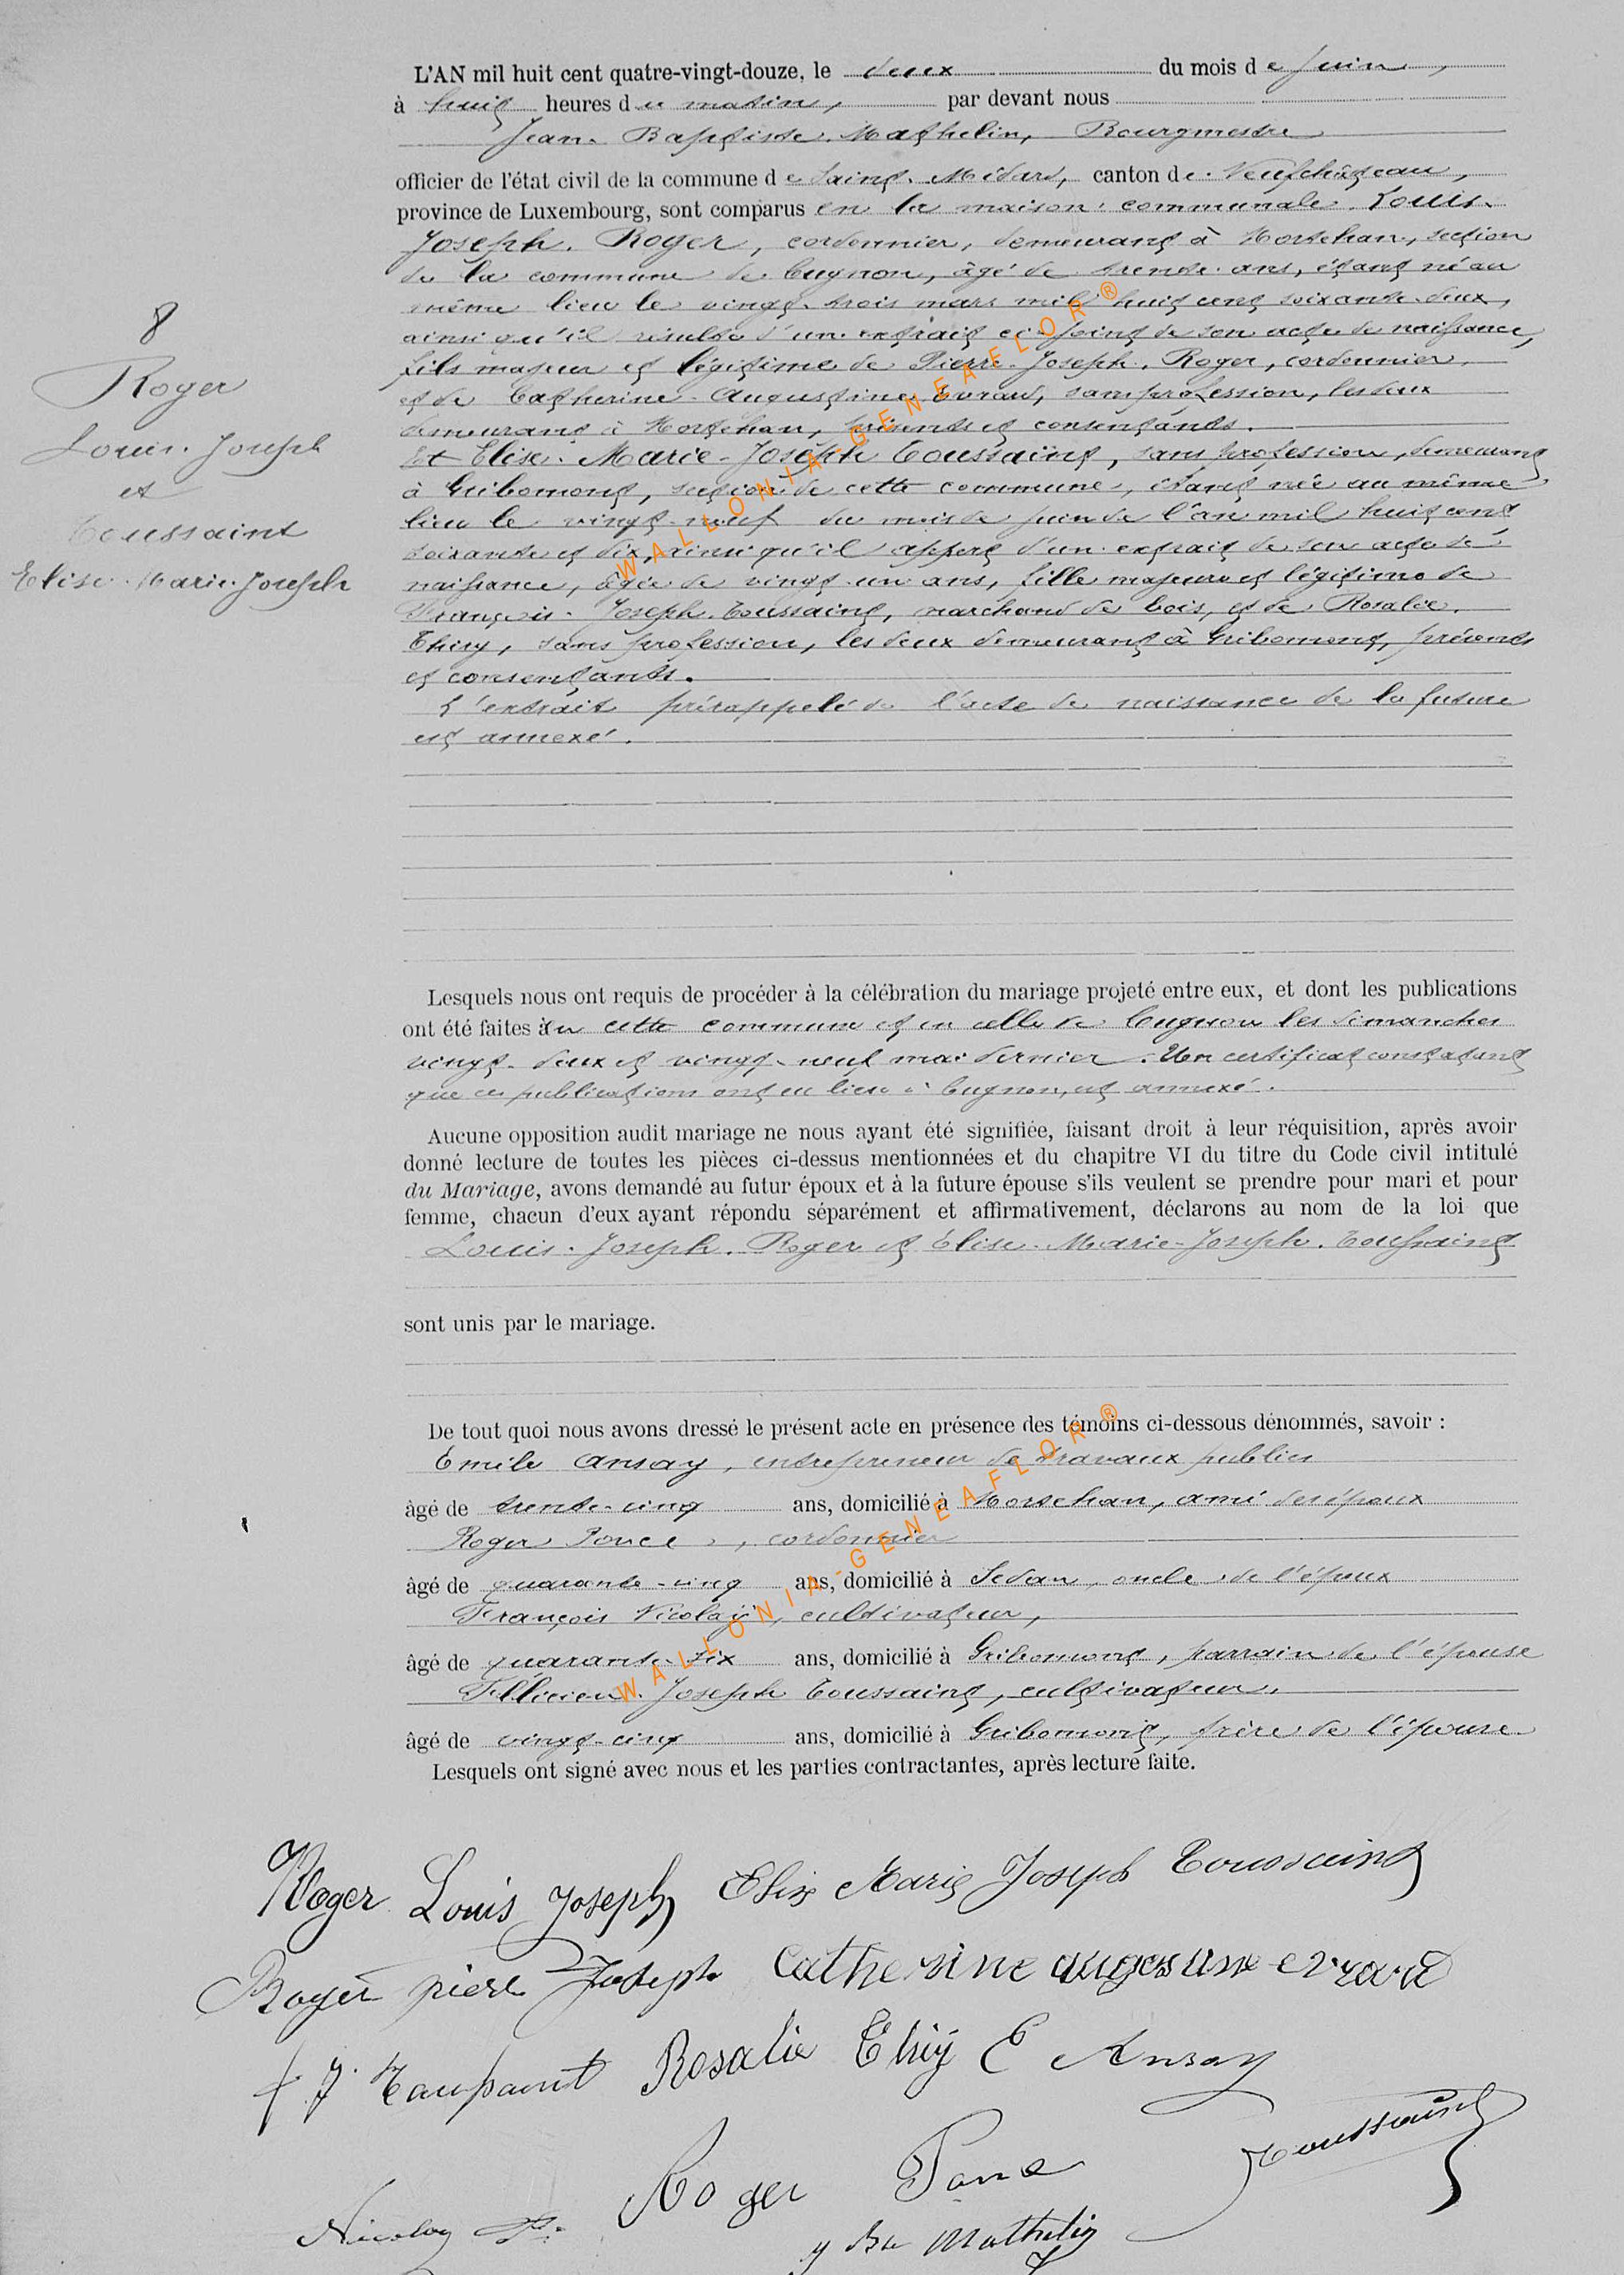 L'AN mil huit cent quatre-vingt-douze, le deux du mois de Juin,
à huit heures du matin, par devant nous
Jean-Baptiste Mathelin, Bourgmestre
officier de l'état civil de la commune de Saint-Médard, canton de Neufchâteau,
province de Luxembourg, sont comparus en la maison communale Louis-
Joseph Roger, cordonnier, demeurant à Mortehan, section
de la commune de Cugnon, âgé de trente ans, étant né au
même lieu le vingt-trois mars mil huit cent soixante-deux,
ainsi qu'il résulte d'un extrait ci-joint de son acte de naissance,
fils majeur et légitime de Pierre-Joseph Roger, cordonnier,
et de Catherine-Augustine Evrard, sans profession, les deux
demeurant à Mortehan, présents et consentants.
Et Elise-Marie-Joseph Toussaint, sans profession, demeurant
à Gribomont, section de cette commune, étant née au même
lieu le vingt-neuf du mois de juin de l'an mil huit cent
soixante et dix, ainsi qu'il appert d'un extrait de son acte de
naissance, âgée de vingt-un ans, fille majeure et légitime de
François-Joseph Toussaint, marchand de bois, et de Rosalie
Thiry, sans profession, les deux demeurant à Gribomont, présents
et consentants.
L'extrait prérappelé de l'acte de naissance de la future
est annexé.
8
Roger
Louis-Joseph
et
Toussaint
Elise-Marie-Joseph
Lesquels nous ont requis de procéder à la célébration du mariage projeté entre eux, et dont les publications
ont été faites en cette commune et en celle de Cugnon les dimanches
vingt-deux et vingt-neuf mai dernier. Un certificat constatant
que ces publications ont eu lieu à Cugnon, est annexé.
Aucune opposition audit mariage ne nous ayant été signifiée, faisant droit à leur réquisition, après avoir
donné lecture de toutes les pièces ci-dessus mentionnées et du chapitre VI du titre du Code civil intitulé
du Mariage, avons demandé au futur époux et à la future épouse s'ils veulent se prendre pour mari et pour
femme, chacun d'eux ayant répondu séparément et affirmativement, déclarons au nom de la loi que
Louis-Joseph Roger et Elise-Marie-Joseph Toussaint
sont unis par le mariage.
De tout quoi nous avons dressé le présent acte en présence des témoins ci-dessous dénommés, savoir :
Emile Ansay, entrepreneur de travaux publics
âgé de trente-cinq ans, domicilié à Mortehan, ami des époux
Roger Ponce, cordonnier
âgé de quarante-cinq ans, domicilié à Sedan, oncle de l'époux
François Nicolaÿ, cultivateur,
âgé de quarante-six ans, domicilié à Gribomont, parrain de l'épouse
Félicien-Joseph Toussaint, cultivateur,
âgé de vingt-cinq ans, domicilié à Gribomont, frère de l'épouse
Lesquels ont signé avec nous et les parties contractantes, après lecture faite.
Roger Louis Joseph Elise Marie Joseph Toussaint
Roger pierre Joseph Catherine augustine evrard
f J. Toussaint Rosalie Thiry E Ansay
Roger Ponce Toussaint
Nicolay Fr. J Bte Mathelin
WALLONIA-GENEAFLOR ®
WALLONIA-GENEAFLOR ®